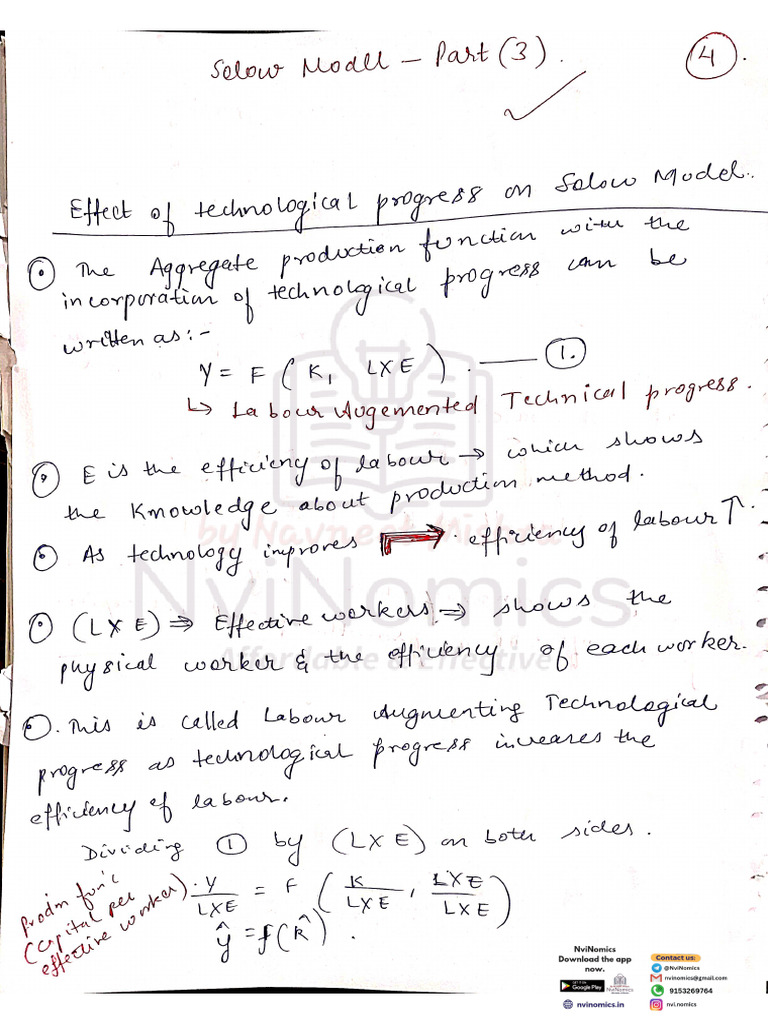 Solow Modell - Part (3).
4.
Effect of technological progress on Solow Model.
The Aggregate production function with the
incorporation of technological progress can be
written as:-
Y = F (K, LXE). —— 1.
↳ Labour Augemented Technical progress.
E is the efficieny of labour → which shows
the Knowledge about production method.
As technology improves → efficiency of labour ↑.
(LXE) ⇒ Effective workers ⇒ shows the
physical worker & the efficiency of each worker.
This is called Labour Augmenting Technological
progress as technological progress increases the
efficiency of labour.
Dividing 1 by (LXE) on both sides.
Y/LXE = F (K/LXE, LXE/LXE)
ŷ = f(k̂).
Prodn func
(capital per
effective worker)
by Navneet
NviNomics
Affordable & Effective
NviNomics
Download the app
now.
GET IT ON
Google Play
NviNomics
nvinomics.in
Contact us:
@NviNomics
nvinomics@gmail.com
9153269764
nvi.nomics